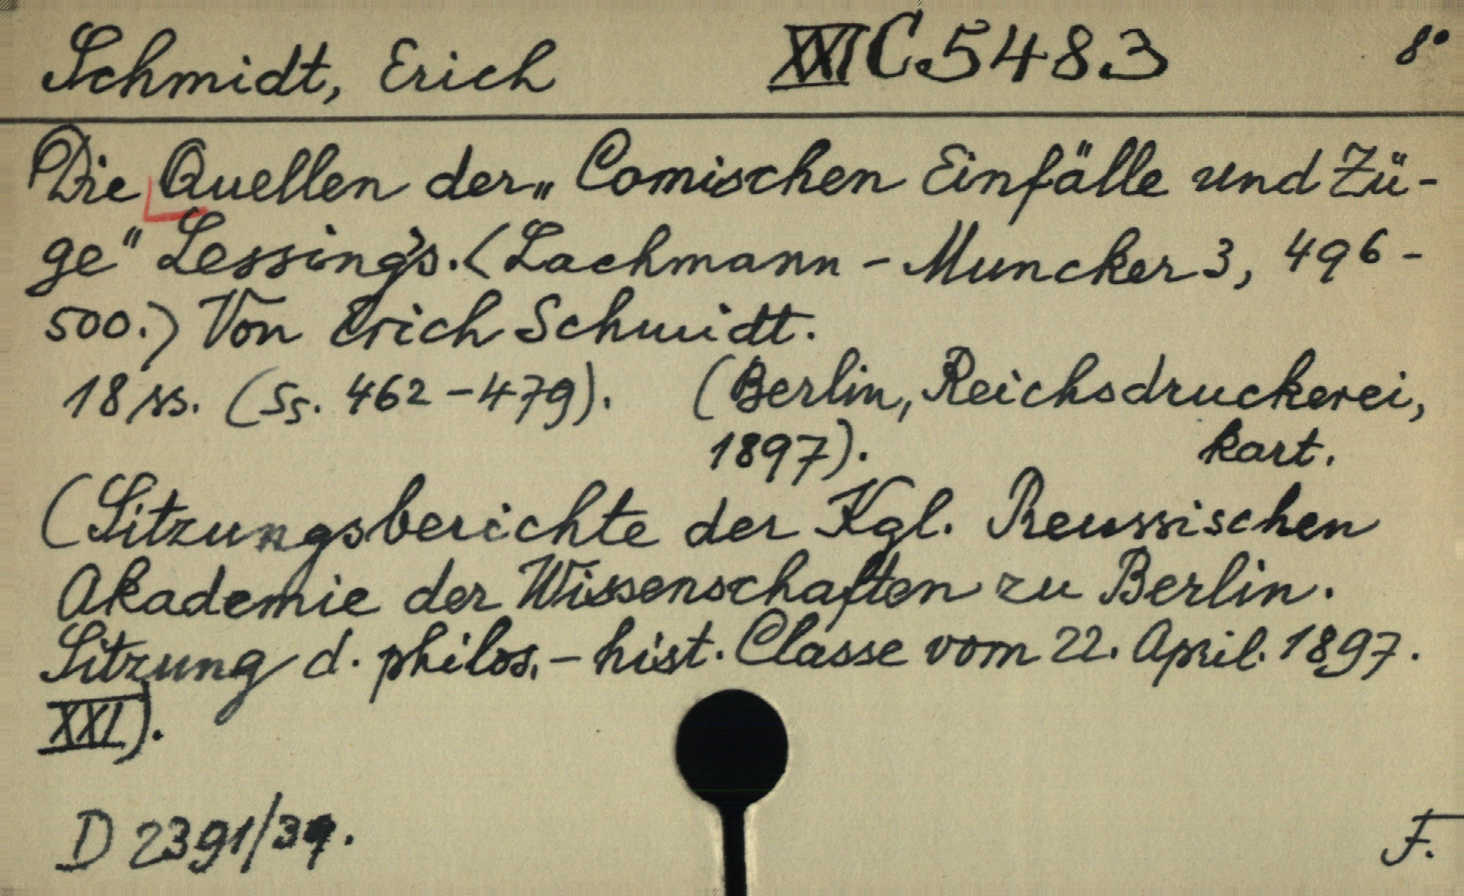 Schmidt, Erich XXI C 5483 8°
Die Quellen der „Comischen Einfälle und Zü-
ge" Lessing's. (Lachmann - Muncker 3, 496-
500.) Von Erich Schmidt.
18 ss. (Ss. 462-479). (Berlin, Reichsdruckerei,
1897). kart.
(Sitzungsberichte der Kgl. Preussischen
Akademie der Wissenschaften zu Berlin.
Sitzung d. philos.-hist. Classe vom 22. April. 1897.
XXI).
D 2391/39.
F.